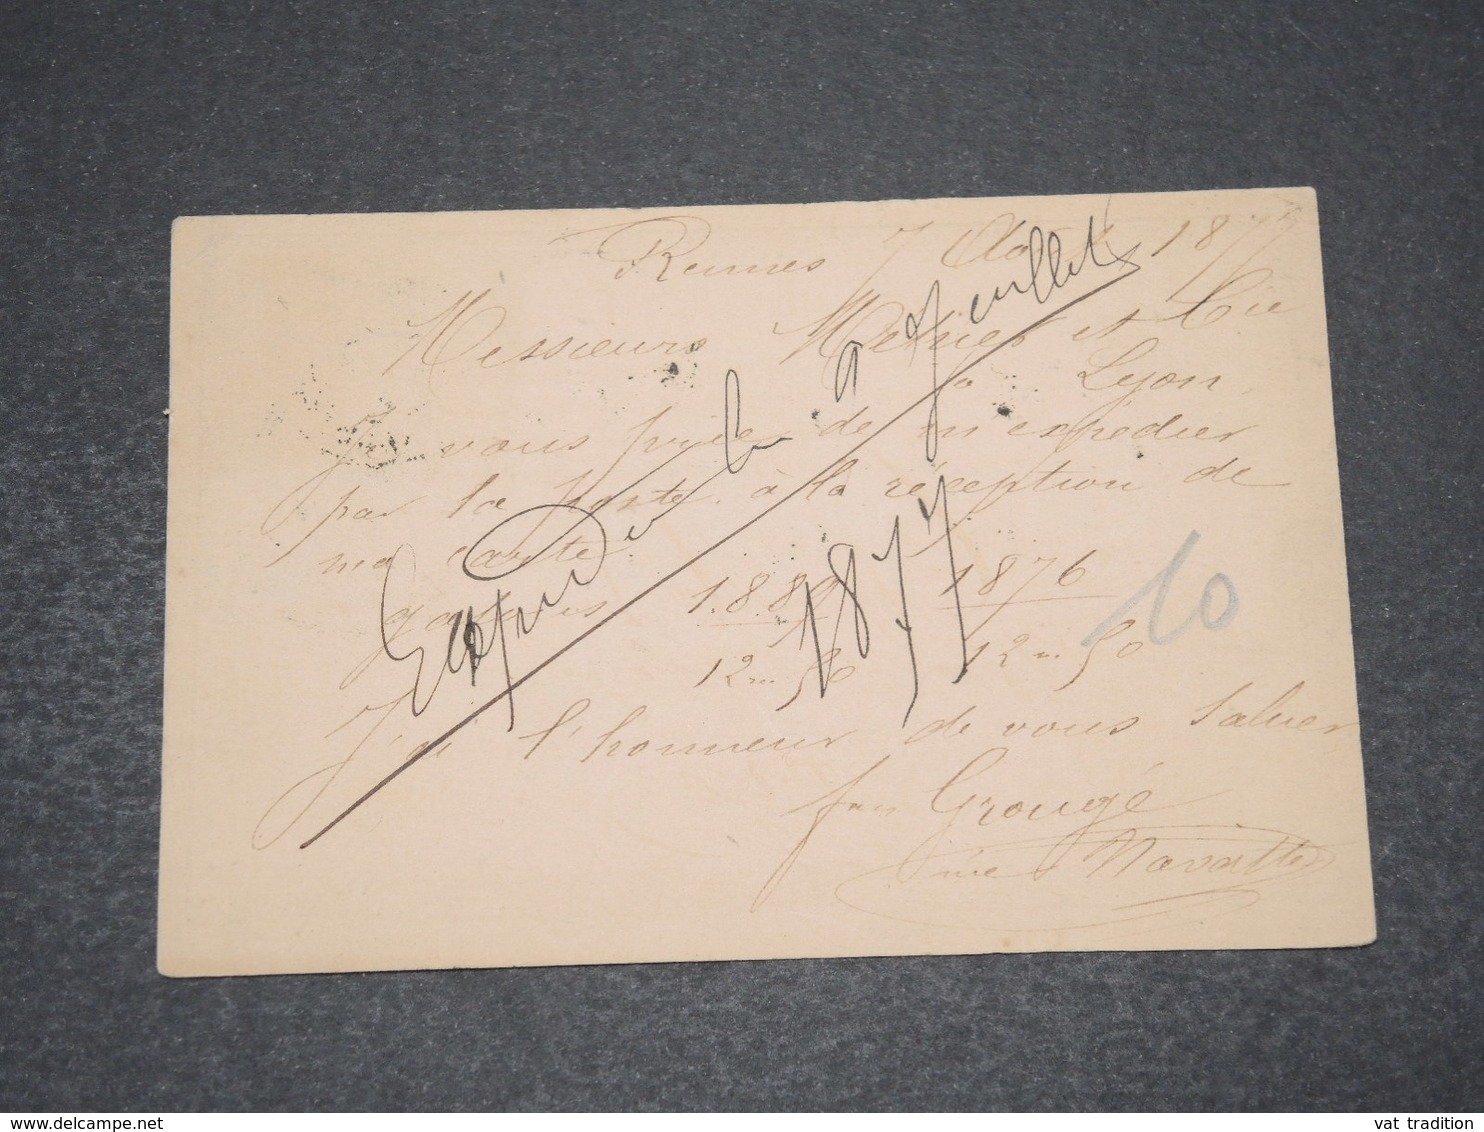 Rennes 7 Août 1877
Messieurs et Cie
à Lyon,
Je vous prie de m'expédier
par la poste, à la réception de
ma carte.
galons 1.889 1876
12 m 50 12 m 50
J'ai l'honneur de vous saluer
Grougé
rue
Expédié le 9 Juillet
1877
10
delcampe.net
vat tradition